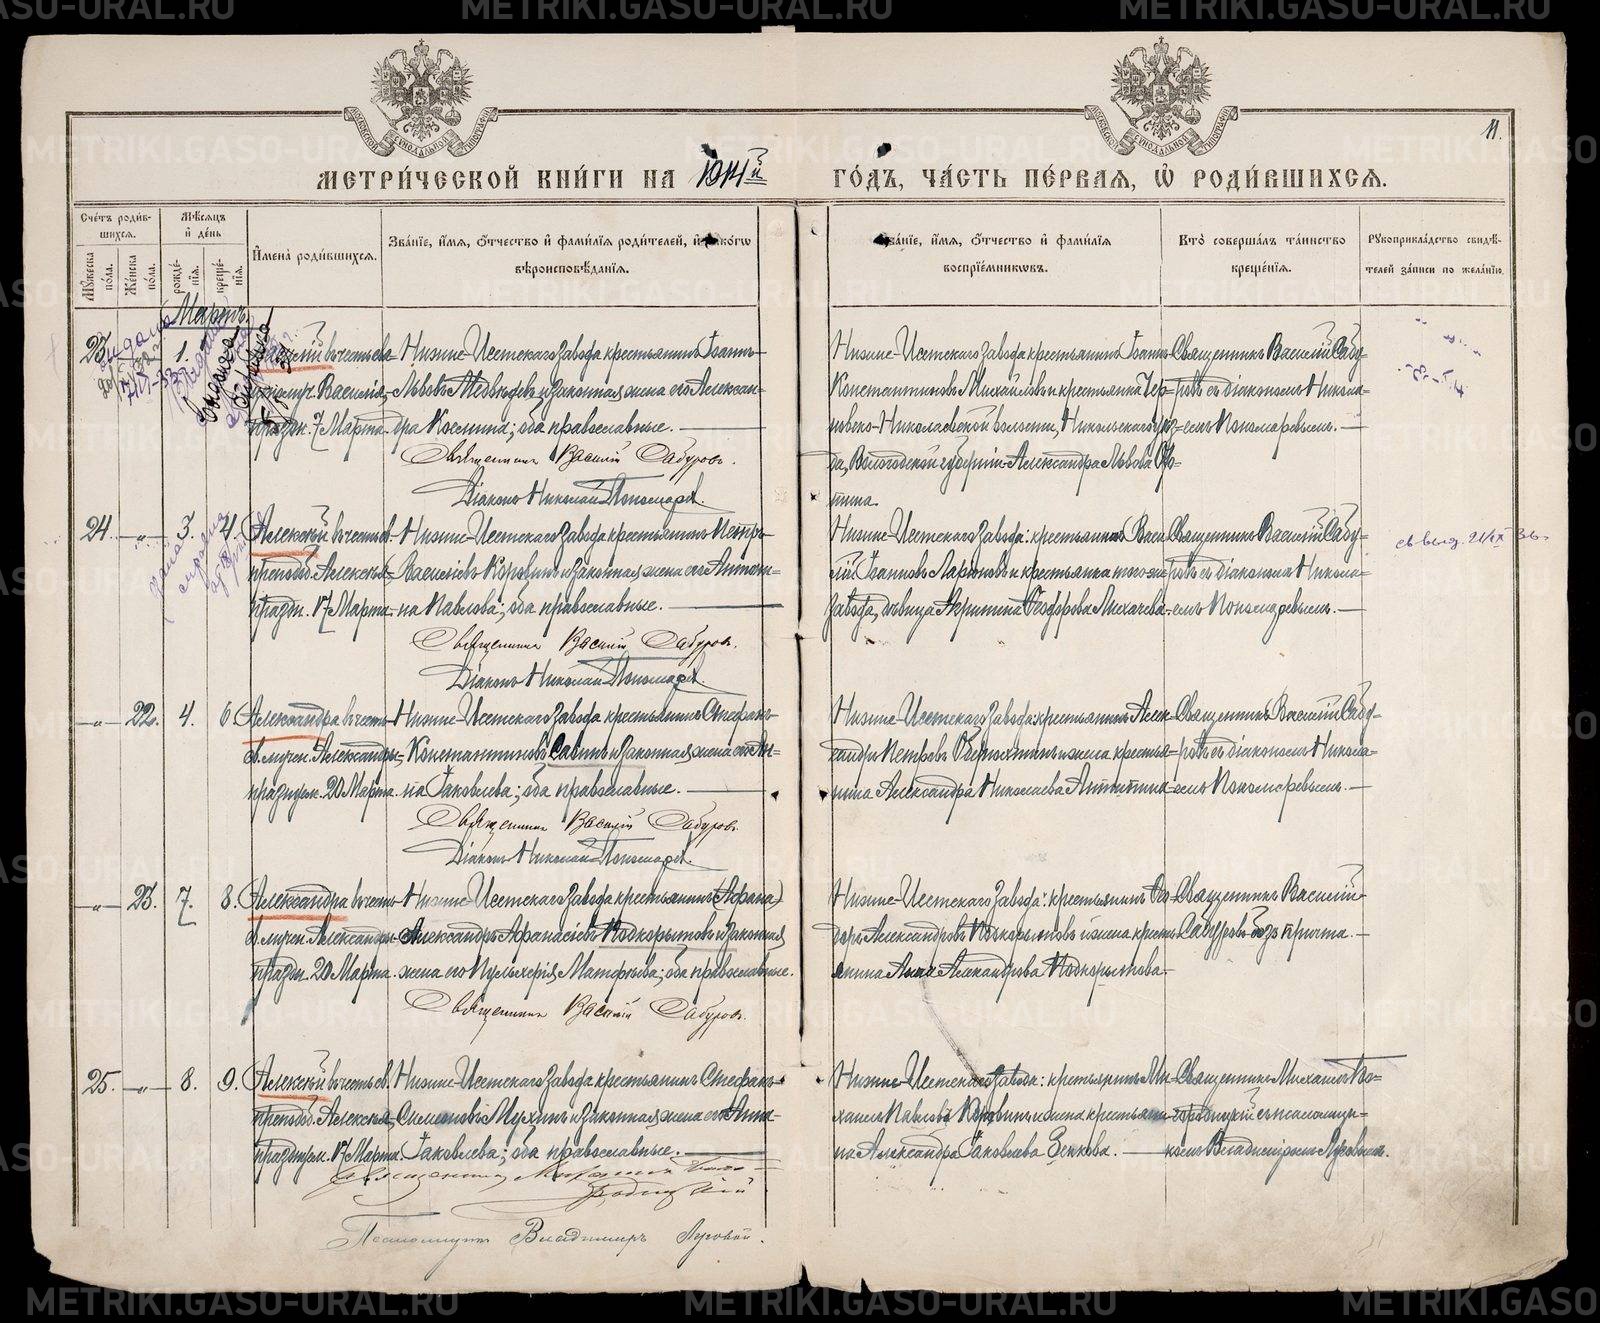 11.
МЕТРИ́ЧЕСКОЙ КНИ́ГИ НА 1914й ГО́ДЪ, ЧА́СТЬ ПЕ́РВАЯ, Ѡ РОДИ́ВШИХСЯ.
Сче́тъ роди́в-
шихся.
Мѣ́сяцъ
и҆ де́нь
Му́жеска
по́ла.
Же́нска
по́ла.
рожде́-
нїя.
креще́-
нїя.
И҆мена̀ роди́вшихся.
Зва́нїе, и҆́мя, ѻ҆́тчество и҆ фами́лїя роди́телей, и҆ како́гѡ
вѣроисповѣ́данїя.
Зва́нїе, и҆́мя, ѻ҆́тчество и҆ фами́лїя
воспрїе́мниковъ.
Кто̀ соверша́лъ та́инство
креще́нїя.
Рꙋкоприкла́дство свидѣ́-
телей за́писи по жела́нїю.
Мартъ.
23. 1.
въ честь св.
Нижне-Исетскаго завода крестьянинъ Іоаннъ
Львовъ Медвѣдевъ и законная жена его Алексан-
праздн. 7 Марта
дра Козмина; оба православные.
Священникъ Василій Сабуровъ.
Діаконъ Николай Пономаревъ.
Нижне-Исетскаго завода крестьянинъ Іоаннъ
Константиновъ Михайловъ и крестьянка
Николаевской волости, Никольскаго уѣз-
да, Вологодской губерніи Александра Львова
Священникъ Василій Сабу-
ровъ съ діакономъ Никола-
емъ Пономаревымъ.
24. 3. 4.
Алексѣй въ честь св.
преподоб. Алексѣя,
праздн. 17 Марта.
Нижне-Исетскаго завода крестьянинъ Петръ
Василіевъ Коровинъ и законная жена его Антони-
на Павлова; оба православные.
Священникъ Василій Сабуровъ.
Діаконъ Николай Пономаревъ.
Нижне-Исетскаго завода: крестьянинъ Васи-
лій Іоанновъ Ларіоновъ и крестьянка того-же
завода, дѣвица Ѳеодорова Лихачева.
Священникъ Василій Сабу-
ровъ съ діакономъ Никола-
емъ Пономаревымъ.
св. выд. 21/IX 36.
22. 4. 6.
Александра въ честь
св. мучен. Александры,
праздн. 20 Марта.
Нижне-Исетскаго завода крестьянинъ Стефанъ
Константиновъ Савинъ и законная жена его Ан-
на Іаковлева; оба православные.
Священникъ Василій Сабуровъ.
Діаконъ Николай Пономаревъ.
Нижне-Исетскаго завода: крестьянинъ Алек-
сандръ Петровъ и жена крестья-
нина Александра Николаева
Священникъ Василій Сабу-
ровъ съ діакономъ Никола-
емъ Пономаревымъ.
23. 7. 8.
Александра въ честь
св. мучен. Александры
праздн. 20 Марта.
Нижне-Исетскаго завода крестьянинъ (Афана)
Александръ Афанасіевъ Подкорытовъ и законная
жена его Пульхерія Матфѣева; оба православные.
Священникъ Василій Сабуровъ.
Нижне-Исетскаго завода: крестьянинъ Ѳео-
доръ Александровъ Подкорытовъ и жена кресть-
янина Анна Александрова Подкорытова.
Священникъ Василій
Сабуровъ безъ причта.
25. 8. 9.
Алексѣй въ честь св.
преподоб. Алексѣя,
праздн. 17 Марта.
Нижне-Исетскаго завода крестьянинъ Стефанъ
Симеоновъ Мухинъ и законная жена его Анна
Іаковлева; оба православные.
Священникъ Михаилъ Бого-
родицкій.
Псаломщикъ Владимиръ Луговой.
Нижне-Исетскаго завода: крестьянинъ Ми-
хаилъ Павловъ Коровинъ и жена крестьяни-
на Александра Іаковлева Зенкова.
Священникъ Михаилъ Бо-
городицкій съ псаломщи-
комъ Владимиромъ Луговымъ.
METRIKI.GASO-URAL.RU